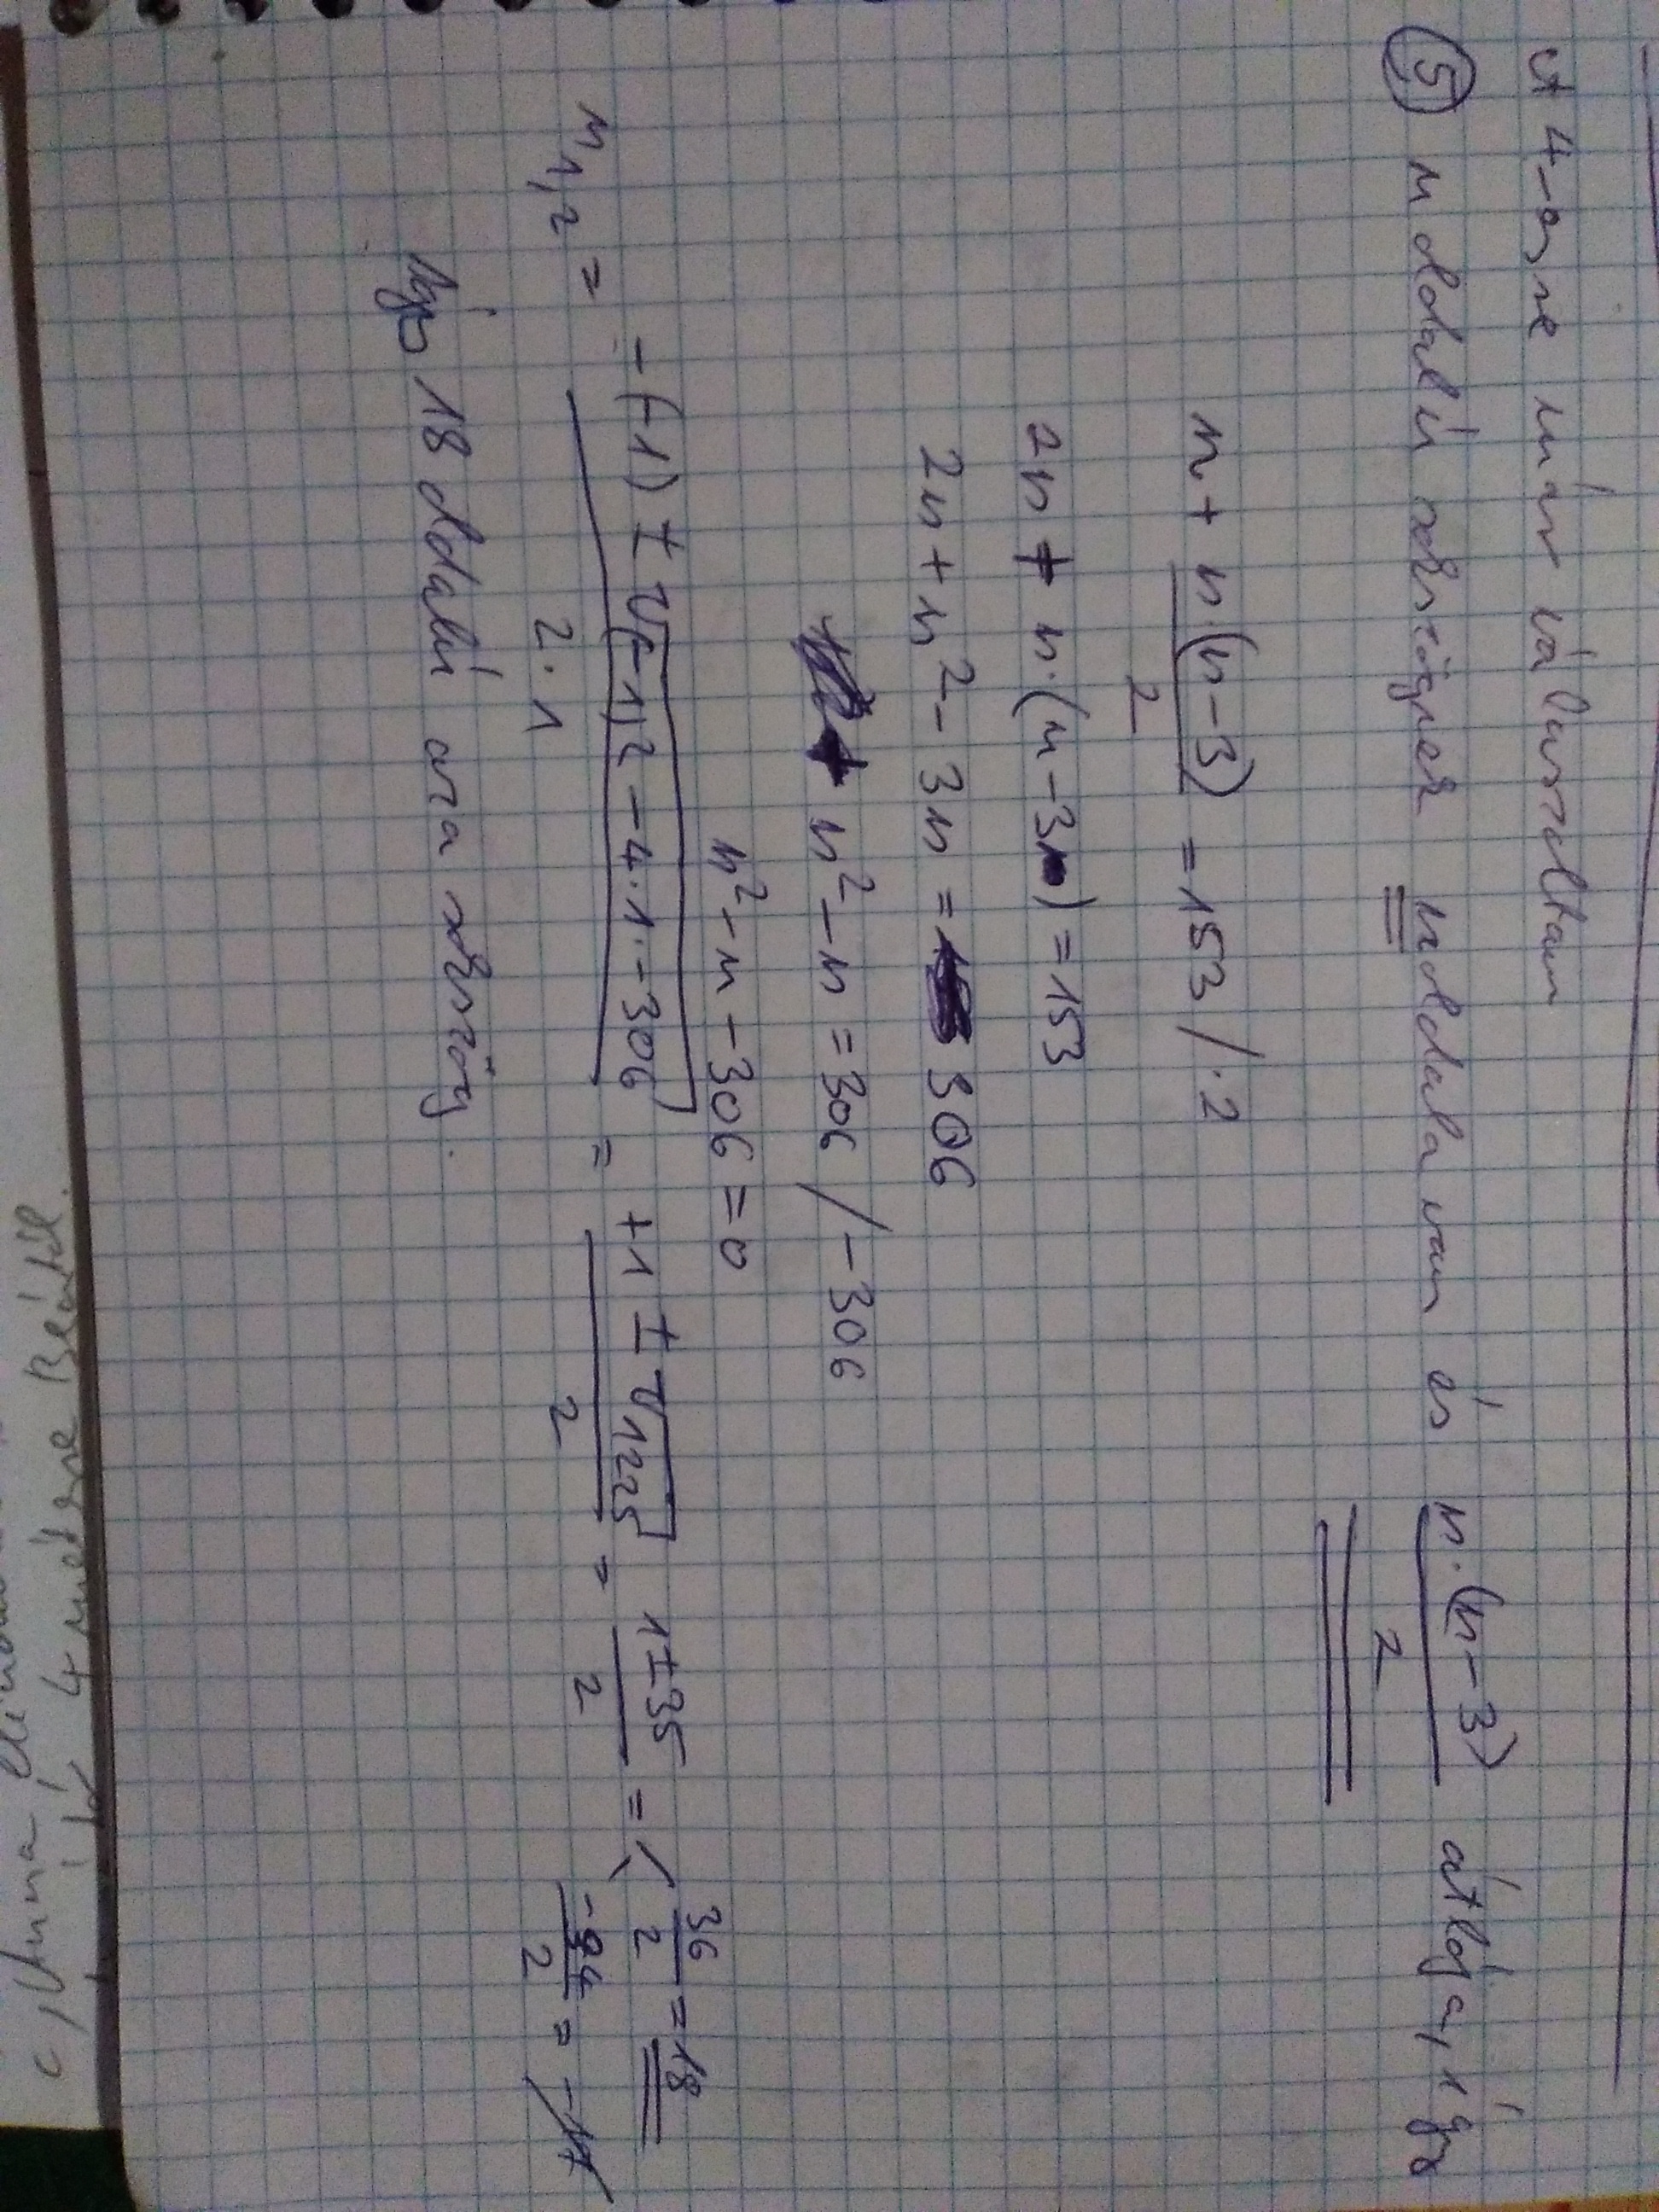 A 4-esre már válaszoltam
⑤ n oldalú sokszögnek n oldala van és n·(n-3)/2 átlója, így
n + n·(n-3)/2 = 153 /·2
2n + n·(n-3) = 153
2n + n² - 3n = 306
n² - n = 306 /-306
n² - n - 306 = 0
n1,2 = -(-1) ± √(-1)² - 4·1·-306 / 2·1 = +1 ± √1225 / 2 = 1±35 / 2 = < 36/2 = 18
-34/2 = -17
18 oldalú a sokszög.
4 méterre